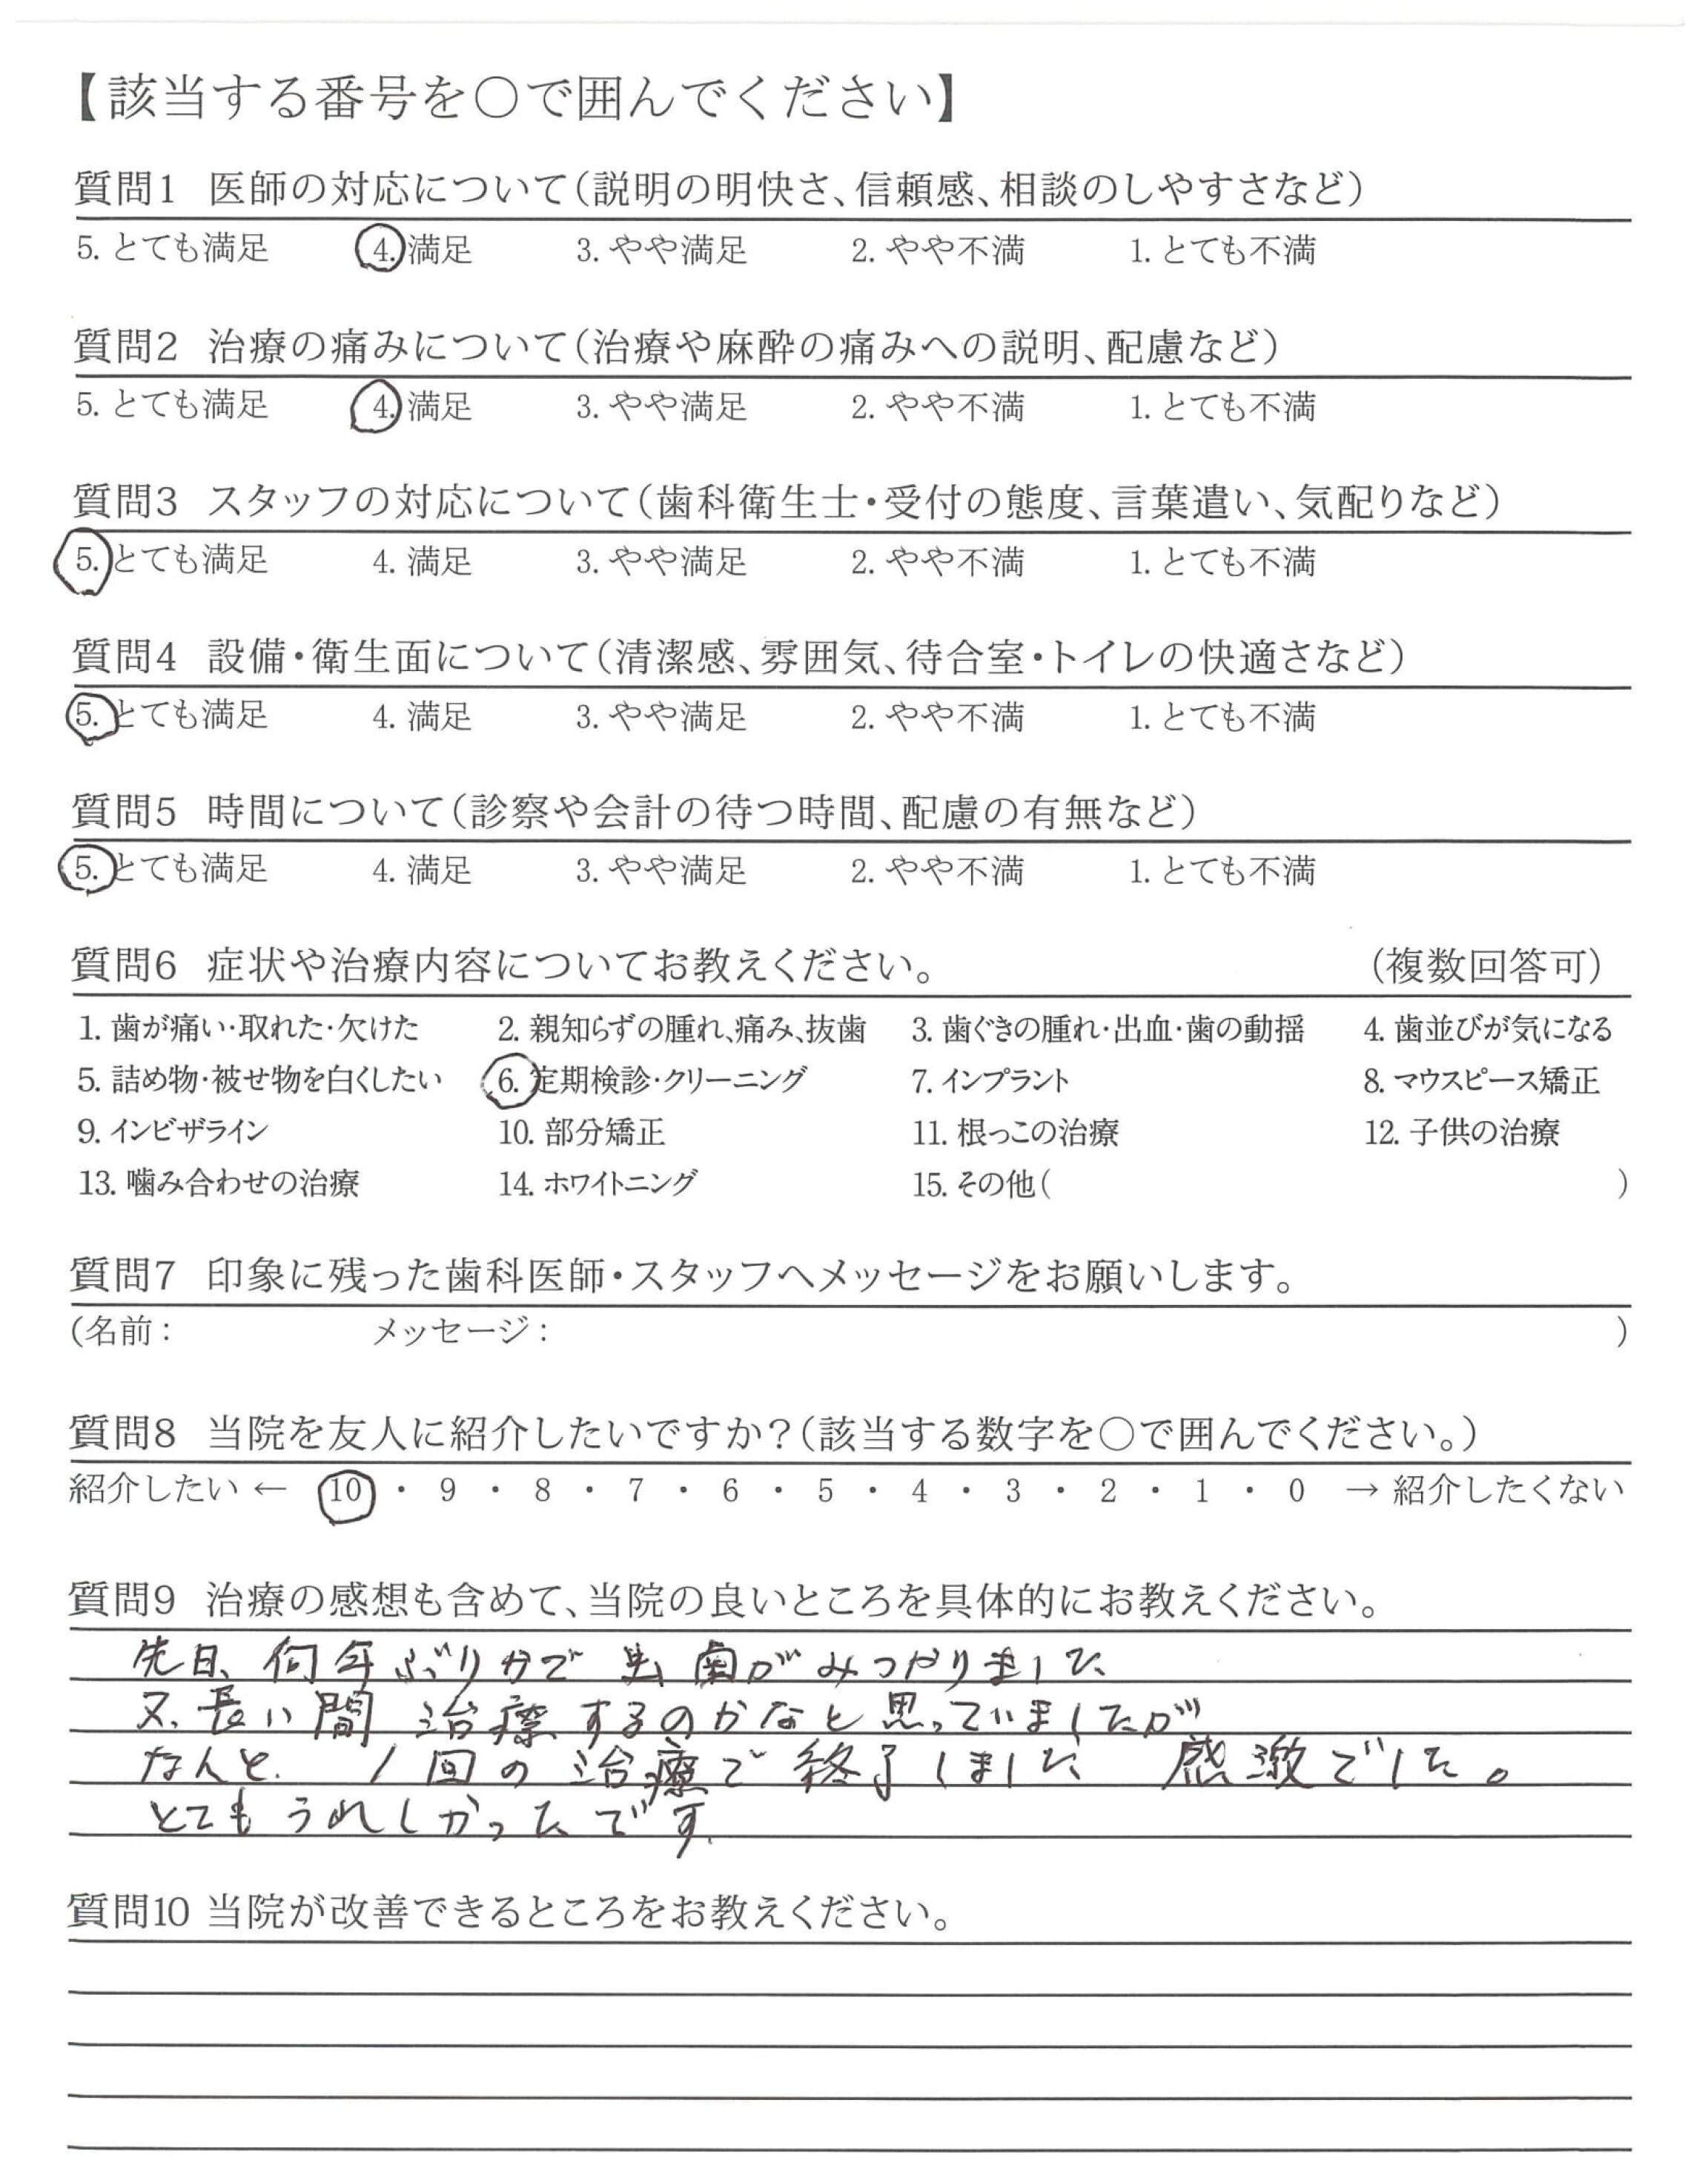 【該当する番号を〇で囲んでください】
質問1 医師の対応について(説明の明快さ、信頼感、相談のしやすさなど)
5. とても満足 4. 満足 3. やや満足 2. やや不満 1. とても不満
質問2 治療の痛みについて(治療や麻酔の痛みへの説明、配慮など)
5. とても満足 4. 満足 3. やや満足 2. やや不満 1. とても不満
質問3 スタッフの対応について(歯科衛生士・受付の態度、言葉遣い、気配りなど)
5. とても満足 4. 満足 3. やや満足 2. やや不満 1. とても不満
質問4 設備・衛生面について(清潔感、雰囲気、待合室・トイレの快適さなど)
5. とても満足 4. 満足 3. やや満足 2. やや不満 1. とても不満
質問5 時間について(診察や会計の待つ時間、配慮の有無など)
5. とても満足 4. 満足 3. やや満足 2. やや不満 1. とても不満
質問6 症状や治療内容についてお教えください。 (複数回答可)
1. 歯が痛い・取れた・欠けた 2. 親知らずの腫れ、痛み、抜歯 3. 歯ぐきの腫れ・出血・歯の動揺 4. 歯並びが気になる
5. 詰め物・被せ物を白くしたい 6. 定期検診・クリーニング 7. インプラント 8. マウスピース矯正
9. インビザライン 10. 部分矯正 11. 根っこの治療 12. 子供の治療
13. 噛み合わせの治療 14. ホワイトニング 15. その他( )
質問7 印象に残った歯科医師・スタッフへメッセージをお願いします。
(名前: メッセージ: )
質問8 当院を友人に紹介したいですか?(該当する数字を〇で囲んでください。)
紹介したい ← 10 ・ 9 ・ 8 ・ 7 ・ 6 ・ 5 ・ 4 ・ 3 ・ 2 ・ 1 ・ 0 → 紹介したくない
質問9 治療の感想も含めて、当院の良いところを具体的にお教えください。
先日、何年ぶりかで虫歯がみつかりました
又、長い間 治療するのかなと思っていましたが
なんと、1回の治療で終了しました 感激でした。
とてもうれしかったです。
質問10 当院が改善できるところをお教えください。